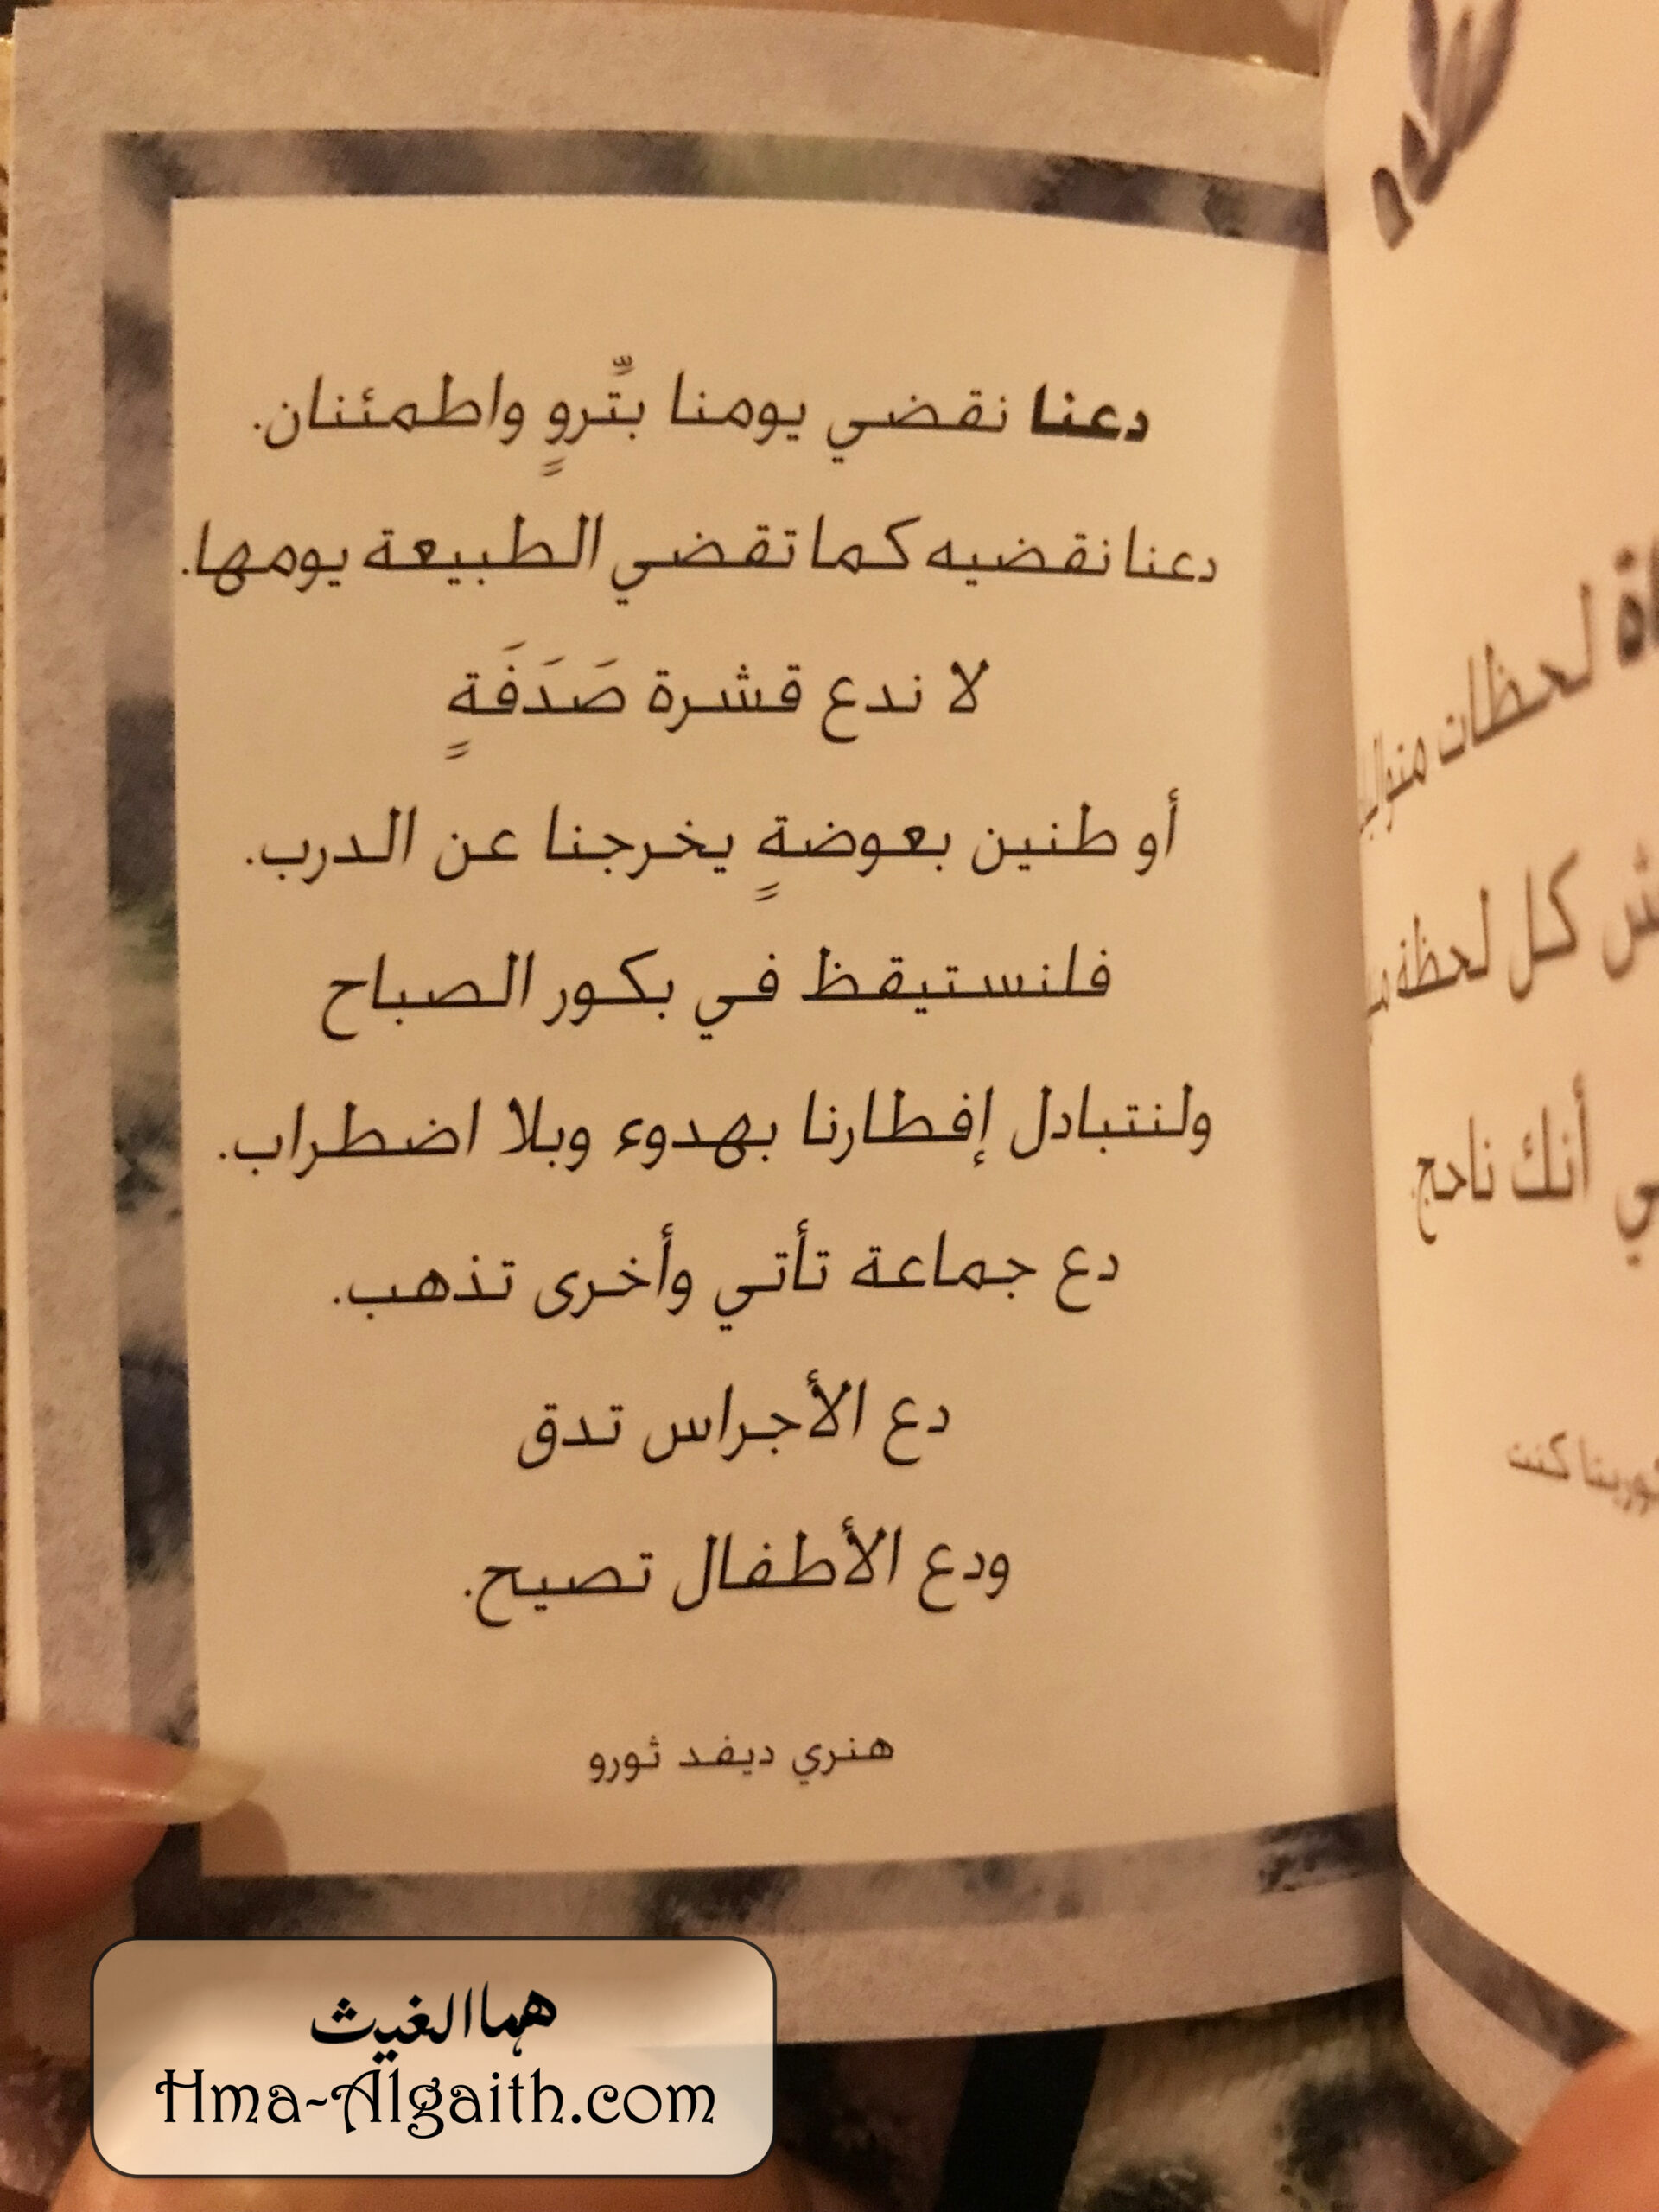 دعنا نقضي يومنا بتِّروٍ واطمئنان.
دعنا نقضيه كما تقضي الطبيعة يومها.
لا ندع قشرة صَدَفَةٍ
أو طنين بعوضةٍ يخرجنا عن الدرب.
فلنستيقظ في بكور الصباح
ولنتبادل إفطارنا بهدوء وبلا اضطراب.
دع جماعة تأتي وأخرى تذهب.
دع الأجراس تدق
ودع الأطفال تصيح.
هنري ديفد ثورو
لحظات
كل لحظة
أنك ناجح
كنت
هما الغيث
Hma-Algaith.com